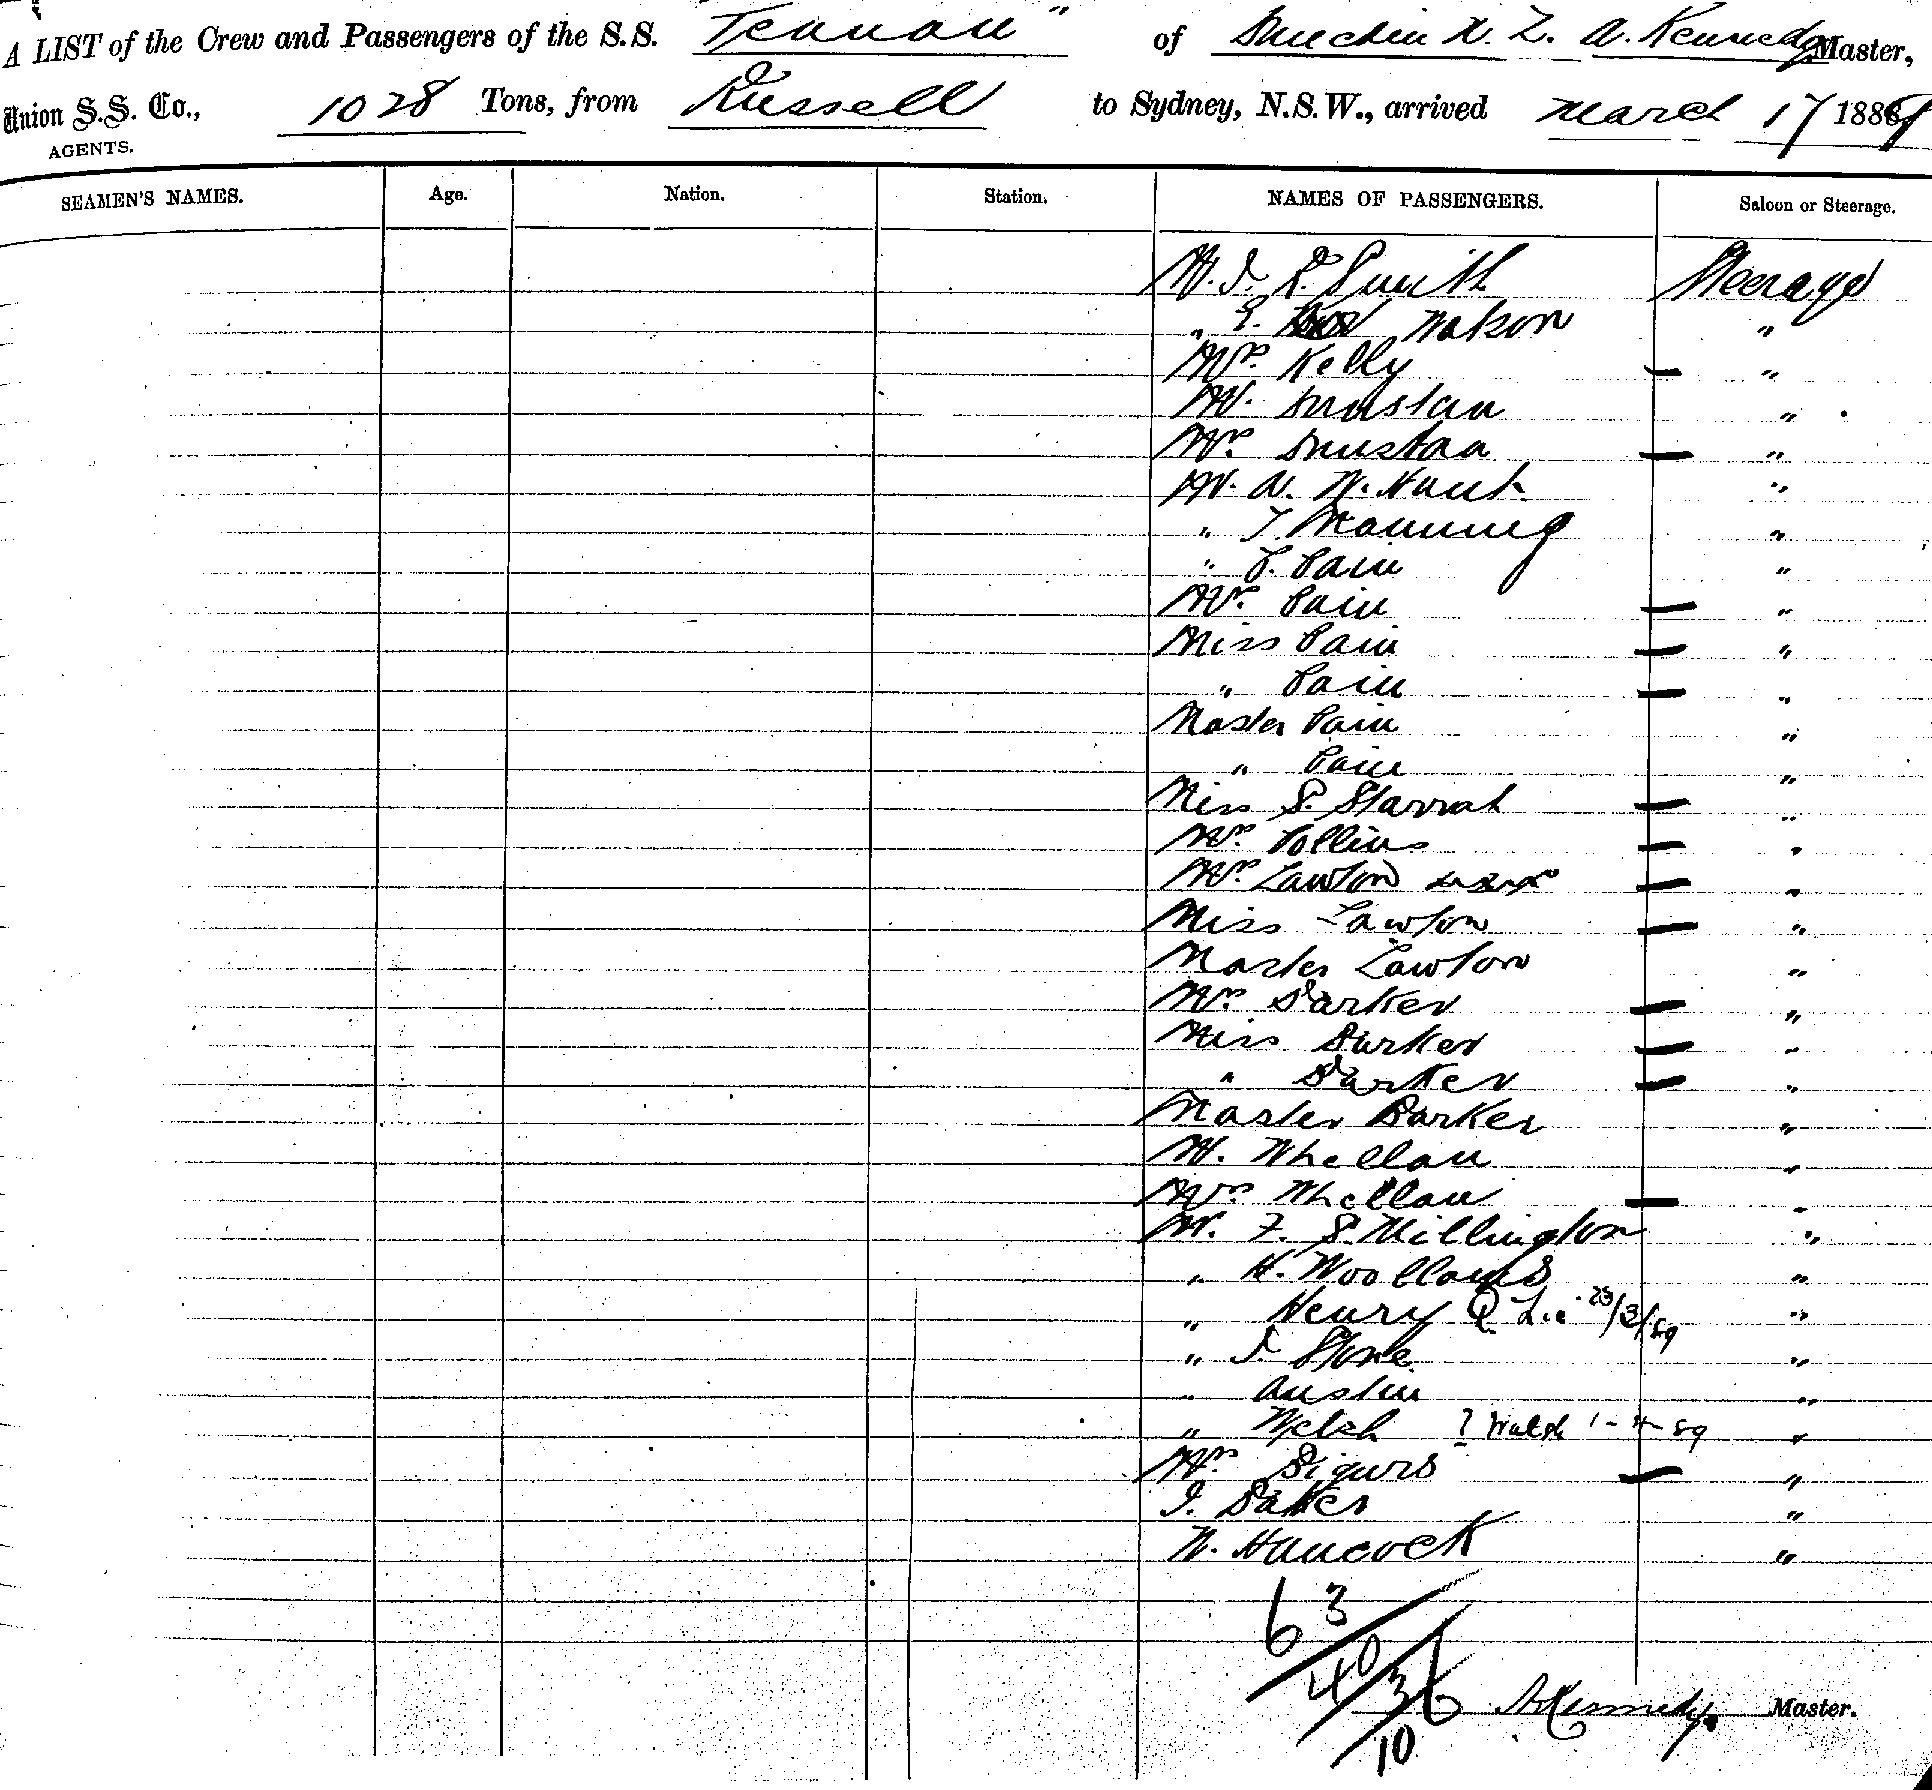 A LIST of the Crew and Passengers of the S.S. "Te Anau" of Dunedin N. Z. A. Kennedy Master,
Union S.S. Co., 1028 Tons, from Russell to Sydney, N.S.W., arrived March 17 1889
AGENTS.
SEAMEN'S NAMES. Age. Nation. Station. NAMES OF PASSENGERS. Saloon or Steerage.
Smith Steerage
" E. "
Mrs Kelly "
Mr "
Mrs "
Mr A. W. "
" T. Manning "
" Pain "
Mrs Pain "
Miss Pain "
" Pain "
Master Pain "
" Pain "
Miss S. Starrat "
Mrs Collins "
Mrs Lawton "
Miss Lawton "
Master Lawton "
Mrs Barker "
Miss Barker "
" Barker "
Master Barker "
Mr Whellan "
Mrs Whellan "
Mr F. S. Millington "
" H. Woollams "
" Henry 23/3/89 "
" Stone "
" Austin "
" Welch ? Walsh 1-4-89 "
Mrs "
J. Baker "
W. Hancock "
63
40/36
10
A Kennedy Master.